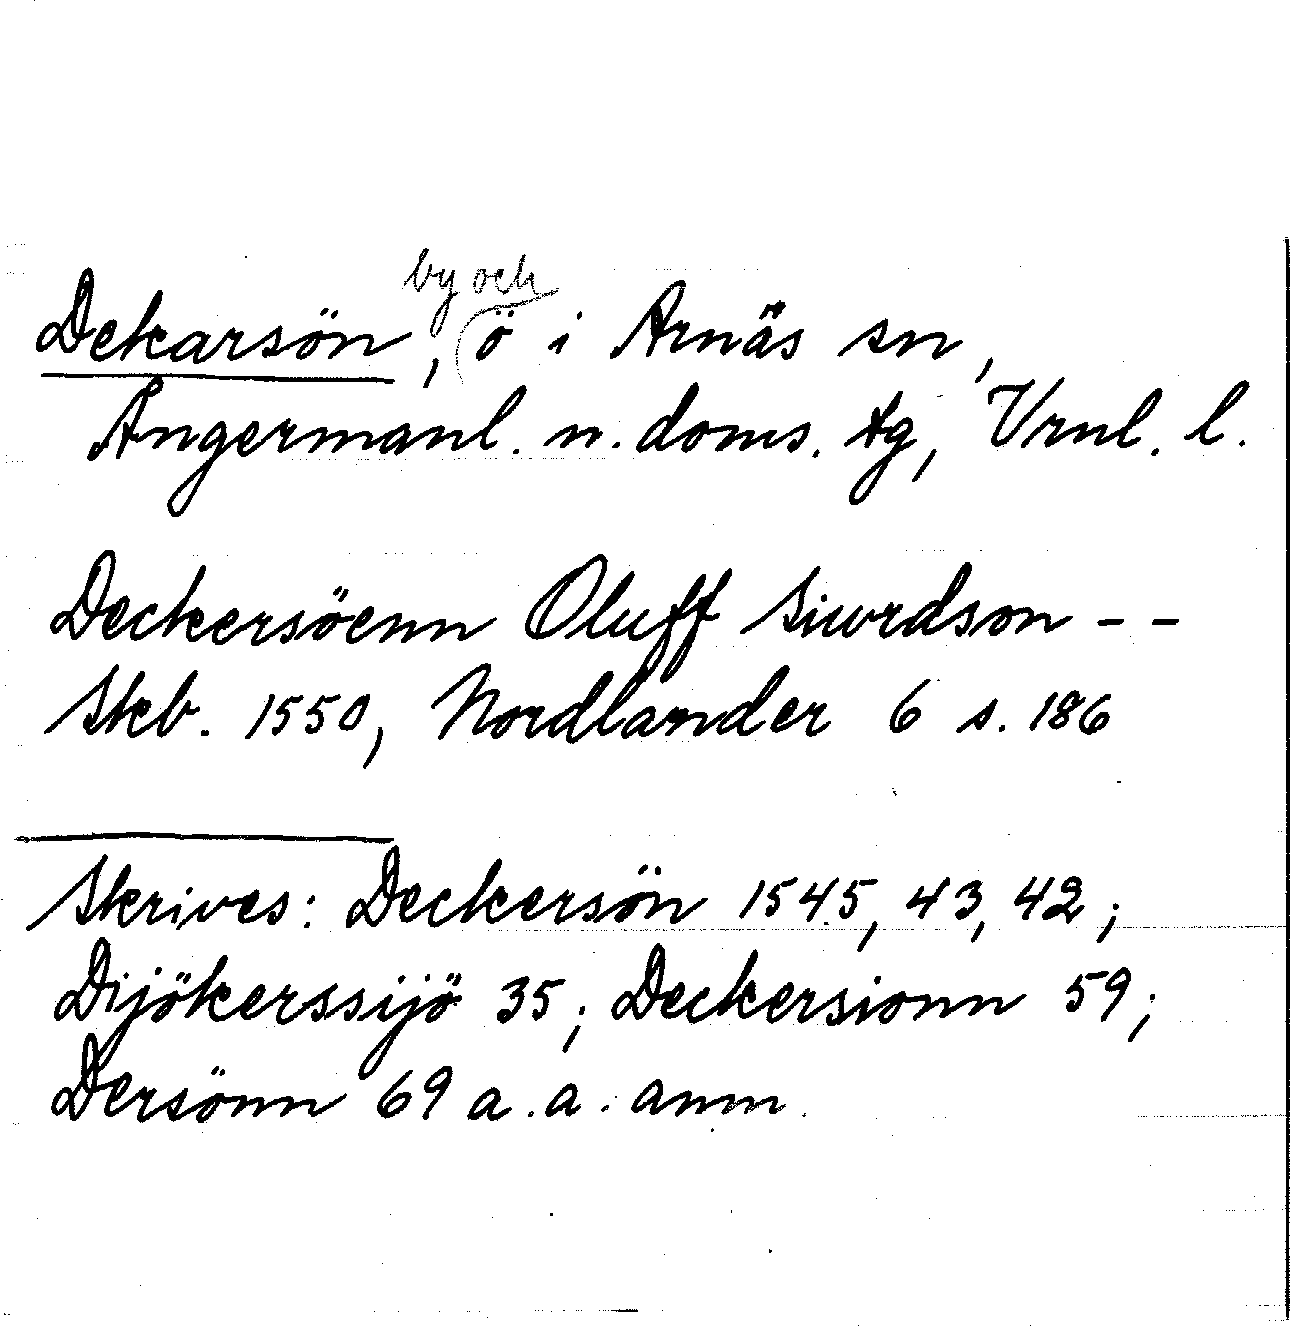 Dekarsön, by och ö i Arnäs sn,
Ångermanl. n. doms. tg, Vrnl. l.
Deckersöenn Oluff Siwrdson - -
Skb. 1550, Nordlander 6 s. 186
Skrives: Deckersön 1545, 43, 42;
Dijökerssijö 35; Deckersionn 59;
Dersönn 69 a. a. anm.